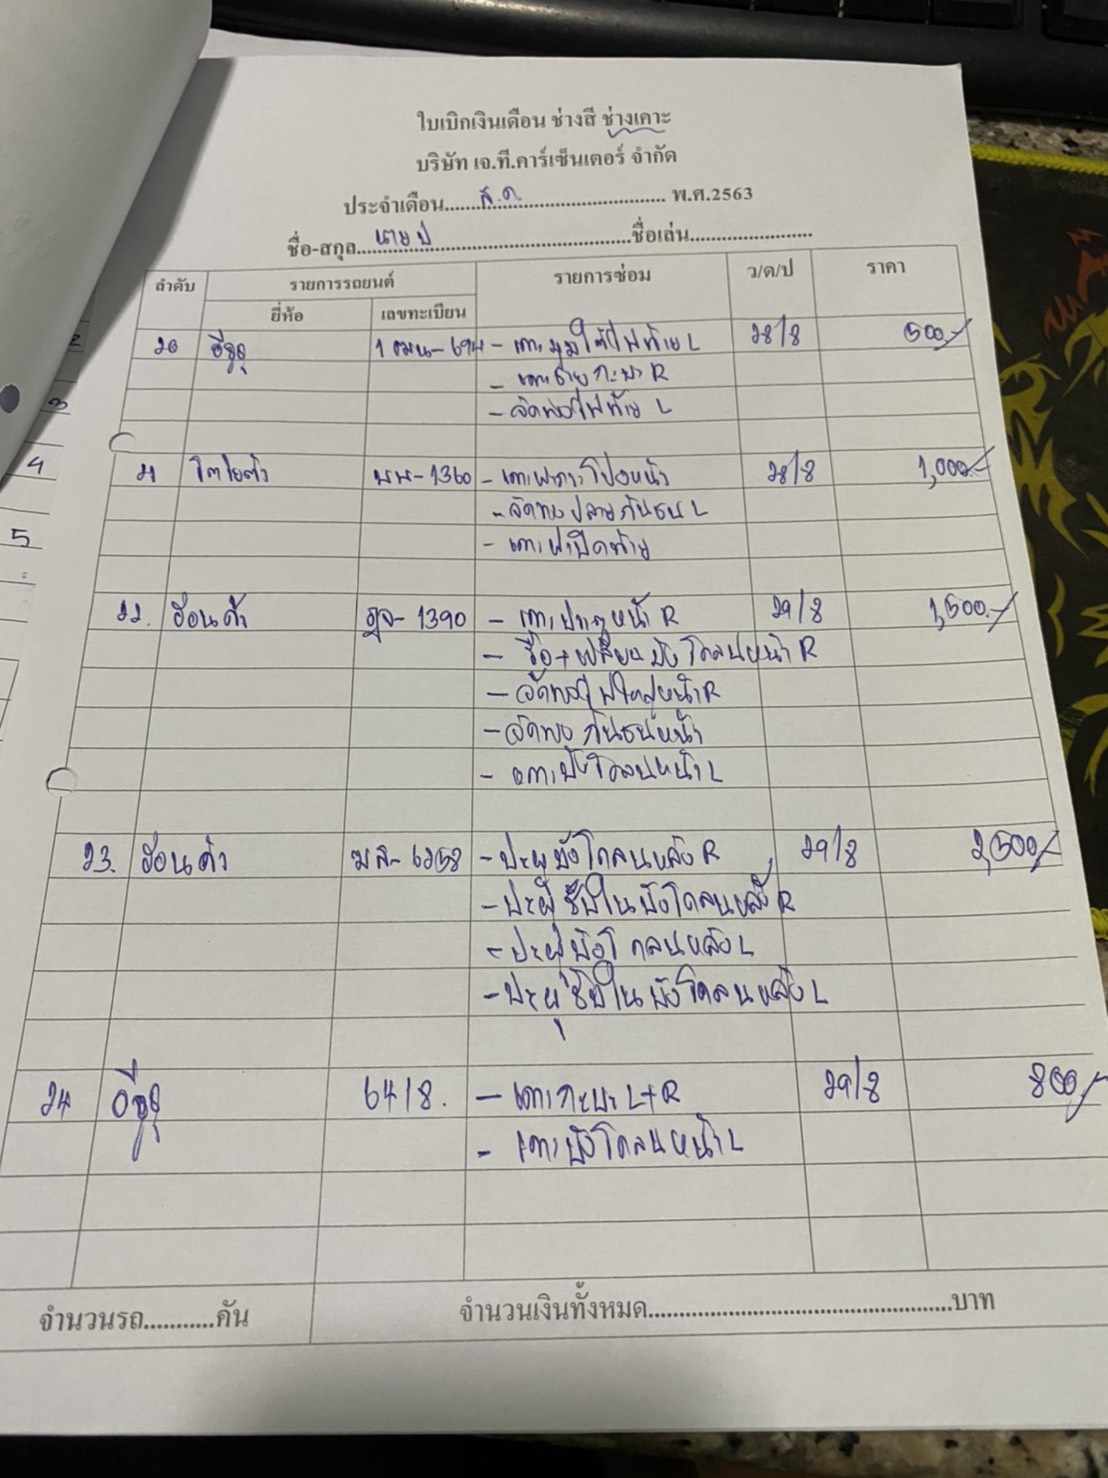 ใบเบิกเงินเดือน ช่างสี ช่างเคาะ
บริษัท เจ.ที.คาร์เซ็นเตอร์ จำกัด
ประจำเดือน......ส.ค............................... พ.ศ.2563
ชื่อ-สกุล..นาย ป.............................ชื่อเล่น.......................
ลำดับ รายการรถยนต์ รายการซ่อม ว/ด/ป ราคา
ยี่ห้อ เลขทะเบียน
20 อีซูซุ - เคาะมุมใต้ไฟท้าย L 28/8 500.-
- เคาะ กะบะ R
- จัดทรงไฟท้าย L
21 โตโยต้า 1360 - เคาะฝากระโปรงหน้า 28/8 1,000.-
- จัดทรงปลายกันชน L
- เคาะฝาปิดท้าย
22. ฮอนด้า ฎจ-1390 - เคาะประตูหน้า R 29/8 1,500.-
- ซื้อ+เปลี่ยนบังโคลนหน้า R
- จัดทรงไฟใหญ่หน้า R
- จัดทรงกันชนหน้า
- เคาะบังโคลนหน้า L
23. ฮอนด้า - ปะผุบังโคลนหลัง R 29/8 2,500/-
- ปะผุซุ้มในบังโคลนหลัง R
- ปะผุบังโคลนหลัง L
- ปะผุซุ้มในบังโคลนหลัง L
24 อีซูซุ - เคาะกะบะ L+R 29/8 800/-
- เคาะบังโคลนหน้า L
จำนวนรถ...........คัน จำนวนเงินทั้งหมด.................................................บาท
2
3
4
5